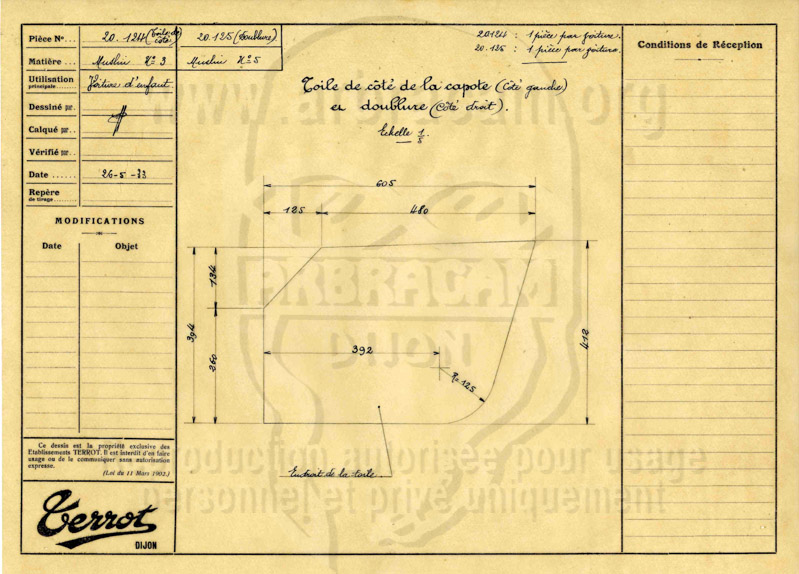 Pièce Nº... 20.124 (Toile de côté) 20.125 (Doublure)
Matière... Muslin Nº 3 Muslin Nº 5
Utilisation principale Voiture d'enfant
Dessiné par..
Calqué par...
Vérifié par..
Date ......
Repère de tirage........
20124 : 1 pièce par voiture.
20.125 : 1 pièce par voiture.
Toile de côté de la capote (Côté gauche)
et doublure (Côté droit).
Echelle 1/5
Conditions de Réception
MODIFICATIONS
Date Objet
605
125 480
134
394
260
392
R=125
412
Endroit de la toile
Ce dessin est la propriété exclusive des
Etablissements TERROT. Il est interdit d'en faire
usage ou de le communiquer sans autorisation
expresse.
(Loi du 11 Mars 1902.)
Terrot
DIJON
ARBRACAM
DIJON
autorisée pour usage
personnel et privé uniquement